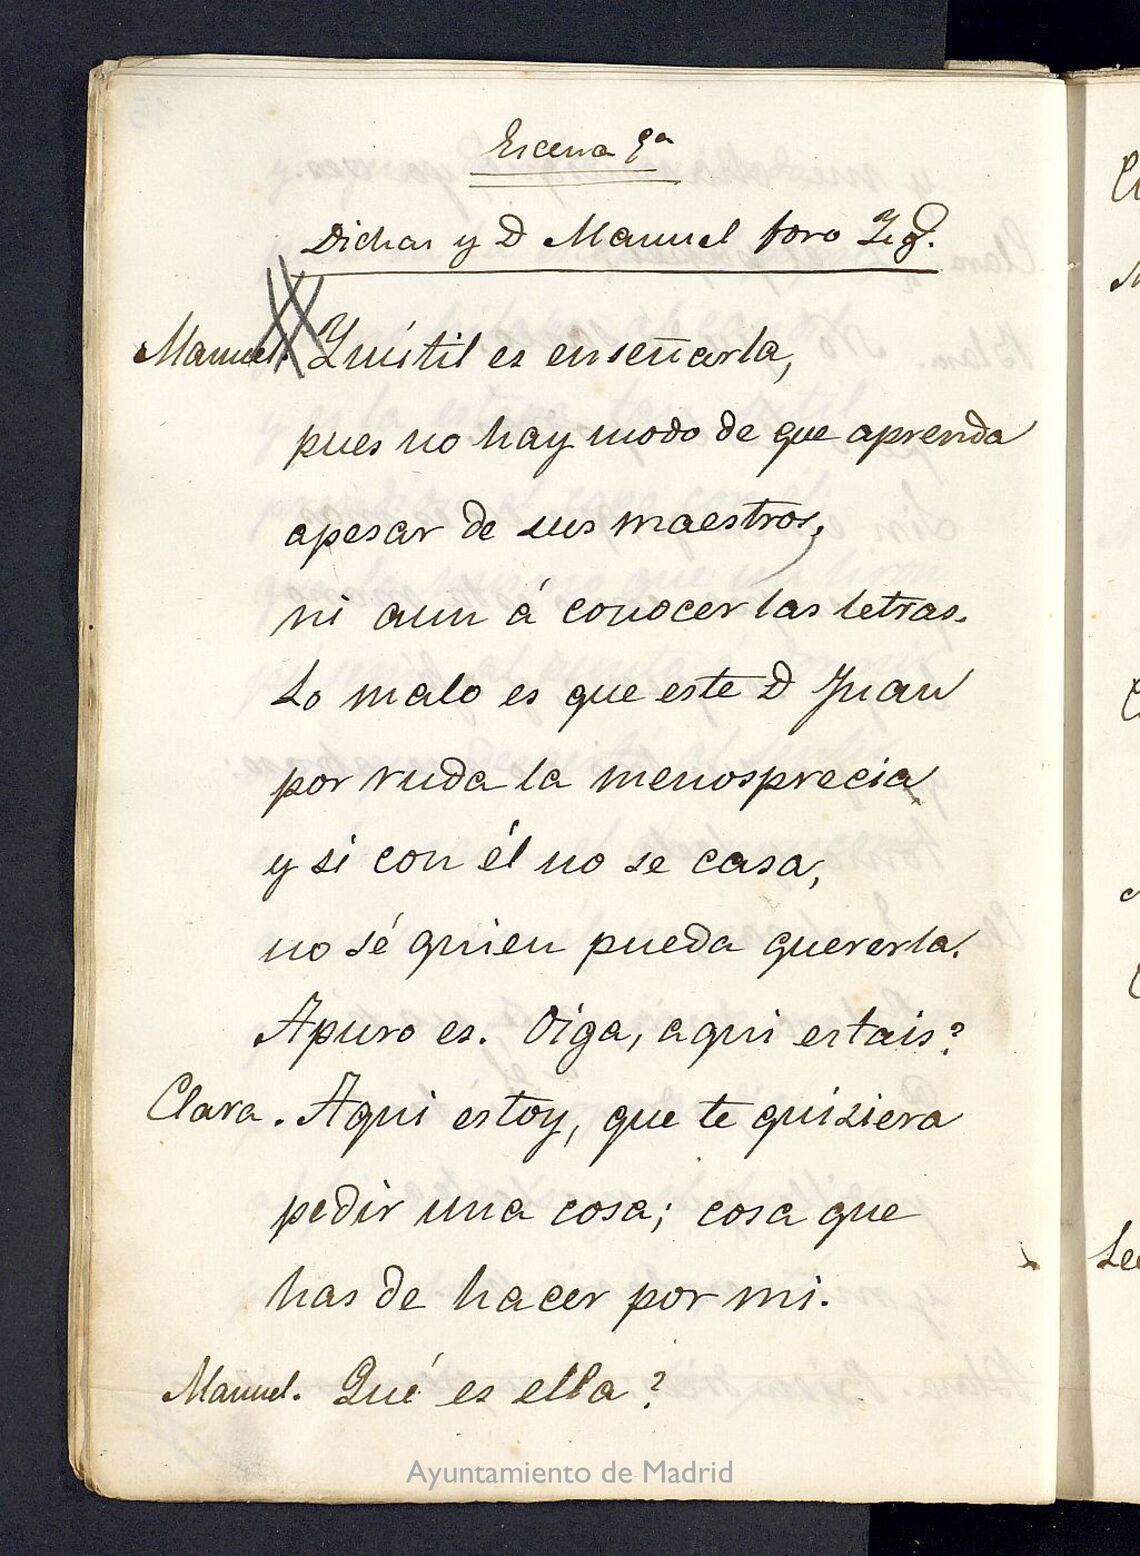 Escena 9ª
Dichas y D Manuel foro Izq.
Manuel. Inútil es enseñarla,
pues no hay modo de que aprenda
apesar de sus maestros,
ni aun á conocer las letras.
Lo malo es que este D Juan
por ruda la menosprecia
y si con él no se casa,
no sé quien pueda quererla.
Apuro es. Oiga, aqui estais?
Clara. Aqui estoy, que te quisiera
pedir una cosa; cosa que
has de hacer por mi.
Manuel. Qué es ella?
Ayuntamiento de Madrid